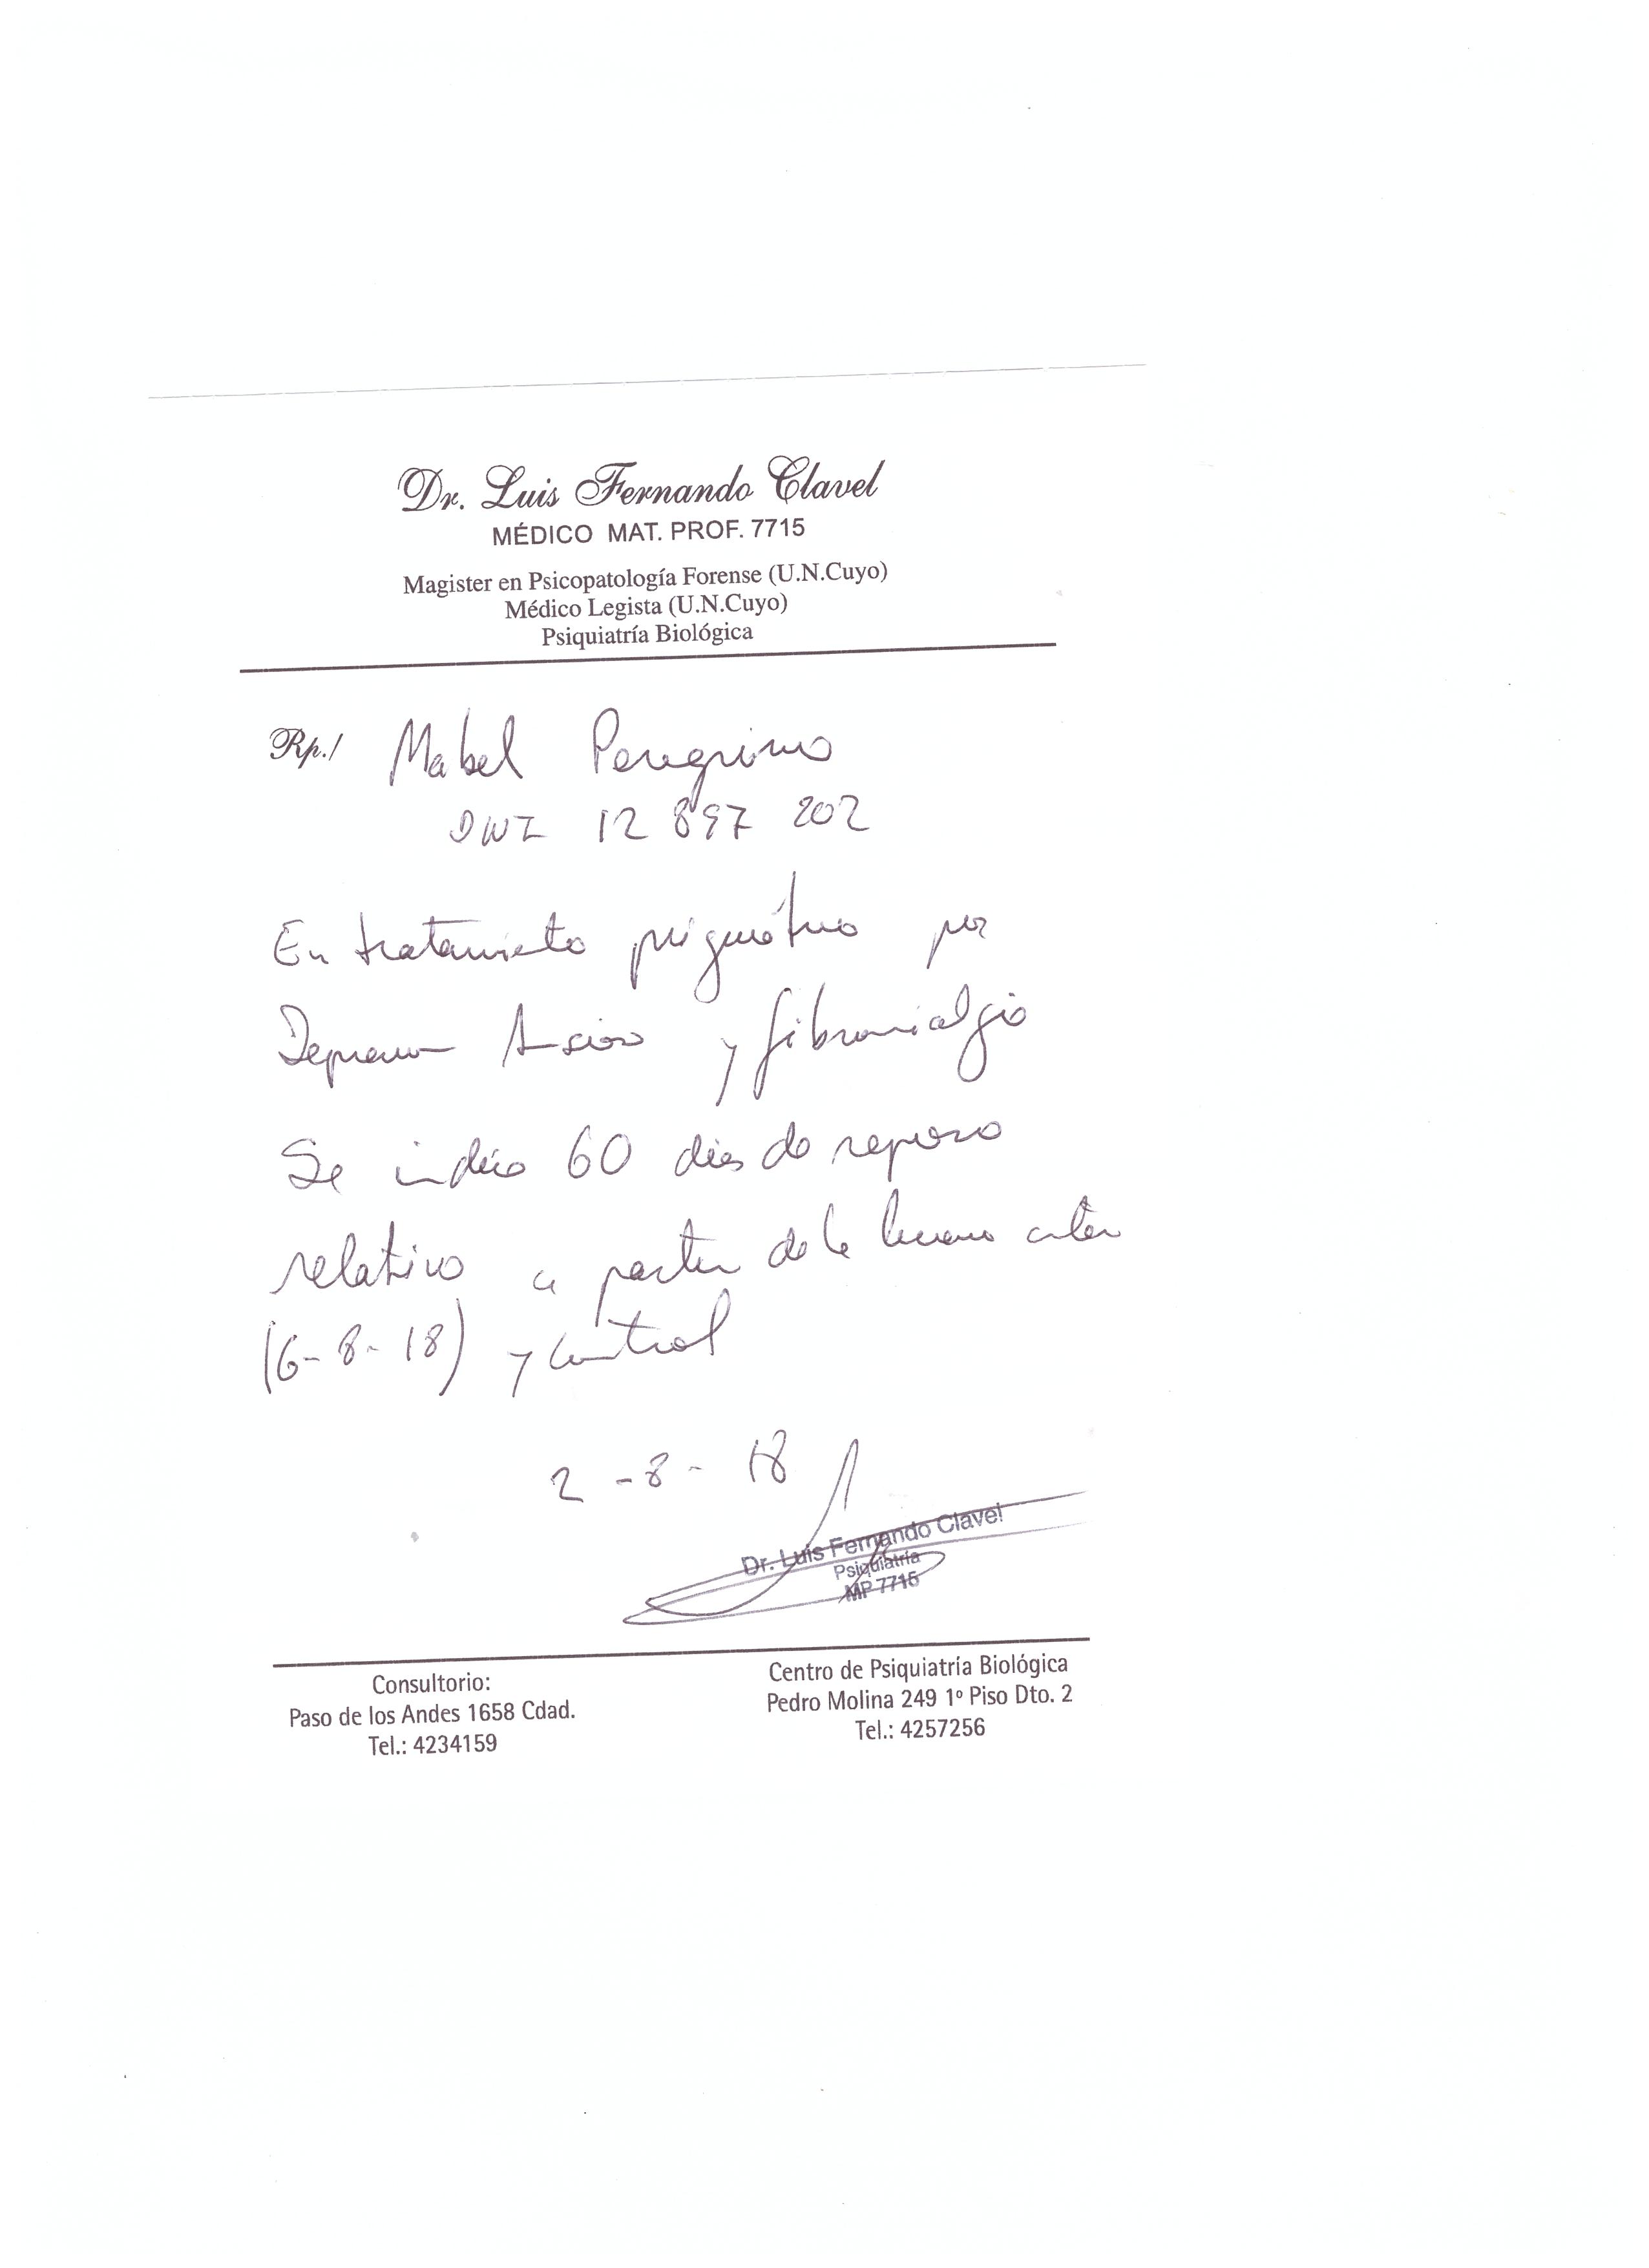 Dr. Luis Fernando Clavel
MÉDICO MAT. PROF. 7715
Magister en Psicopatología Forense (U.N.Cuyo)
Médico Legista (U.N.Cuyo)
Psiquiatría Biológica
Rp./ Mabel Peregrino
DNI 12 897 202
En tratamiento psiquiátrico por
Depresion Ansiosa y fibromialgia
Se indica 60 dias de reposo
relativo a partir de la
(6-8-18) y control
2-8-18
Dr. Luis Fernando Clavel
Psiquiatría
MP 7715
Consultorio:
Paso de los Andes 1658 Cdad.
Tel.: 4234159
Centro de Psiquiatría Biológica
Pedro Molina 249 1º Piso Dto. 2
Tel.: 4257256